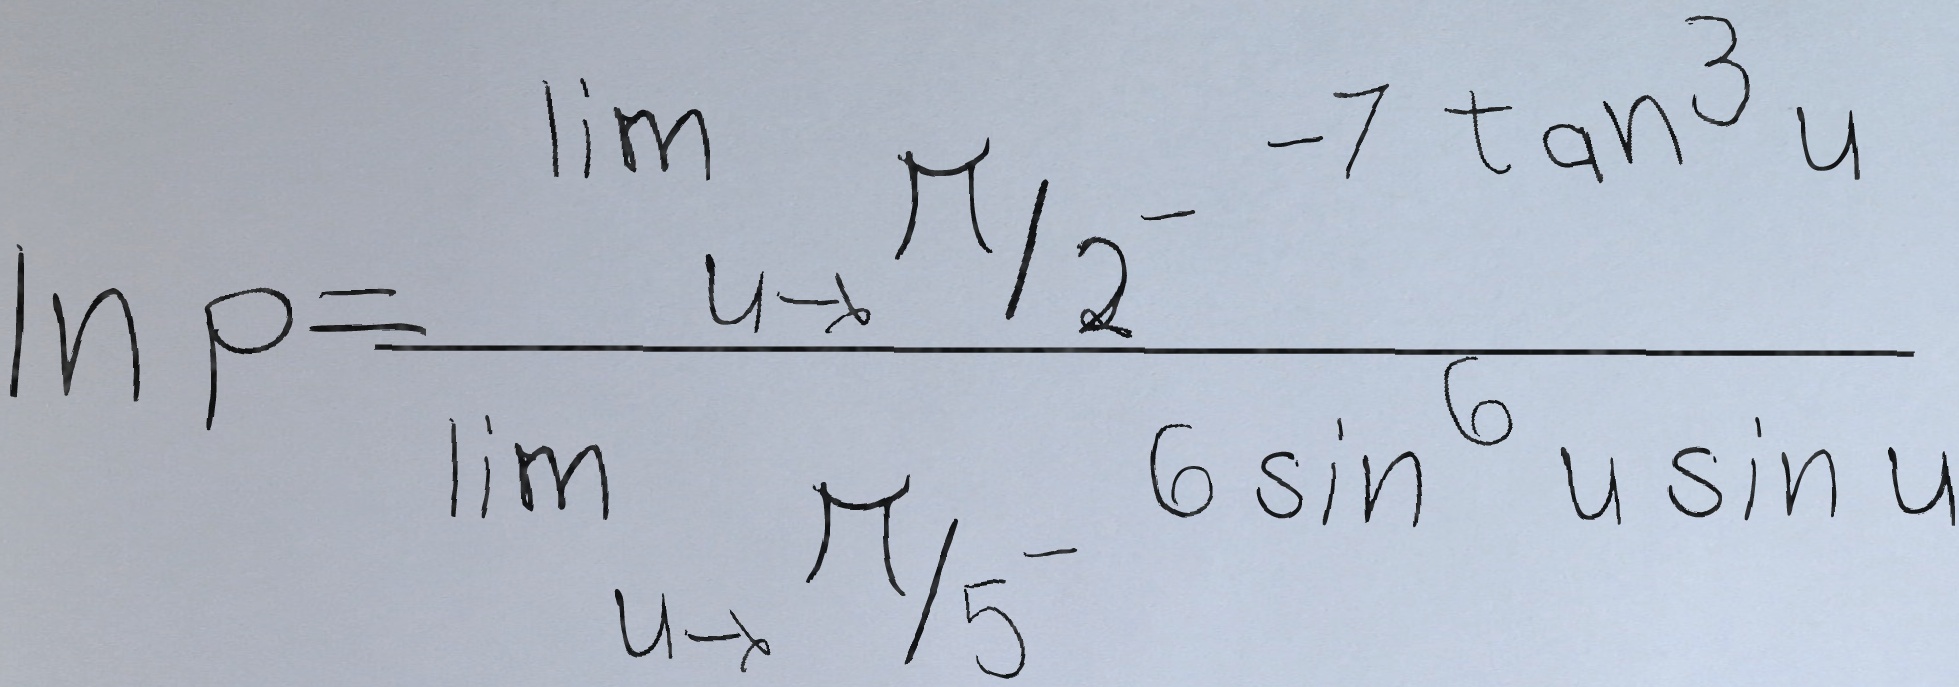 \ln p = \frac{\lim_{u \to \pi/2^-} -7 \tan^3 u}{\lim_{u \to \pi/5^-} 6 \sin^6 u \sin u}